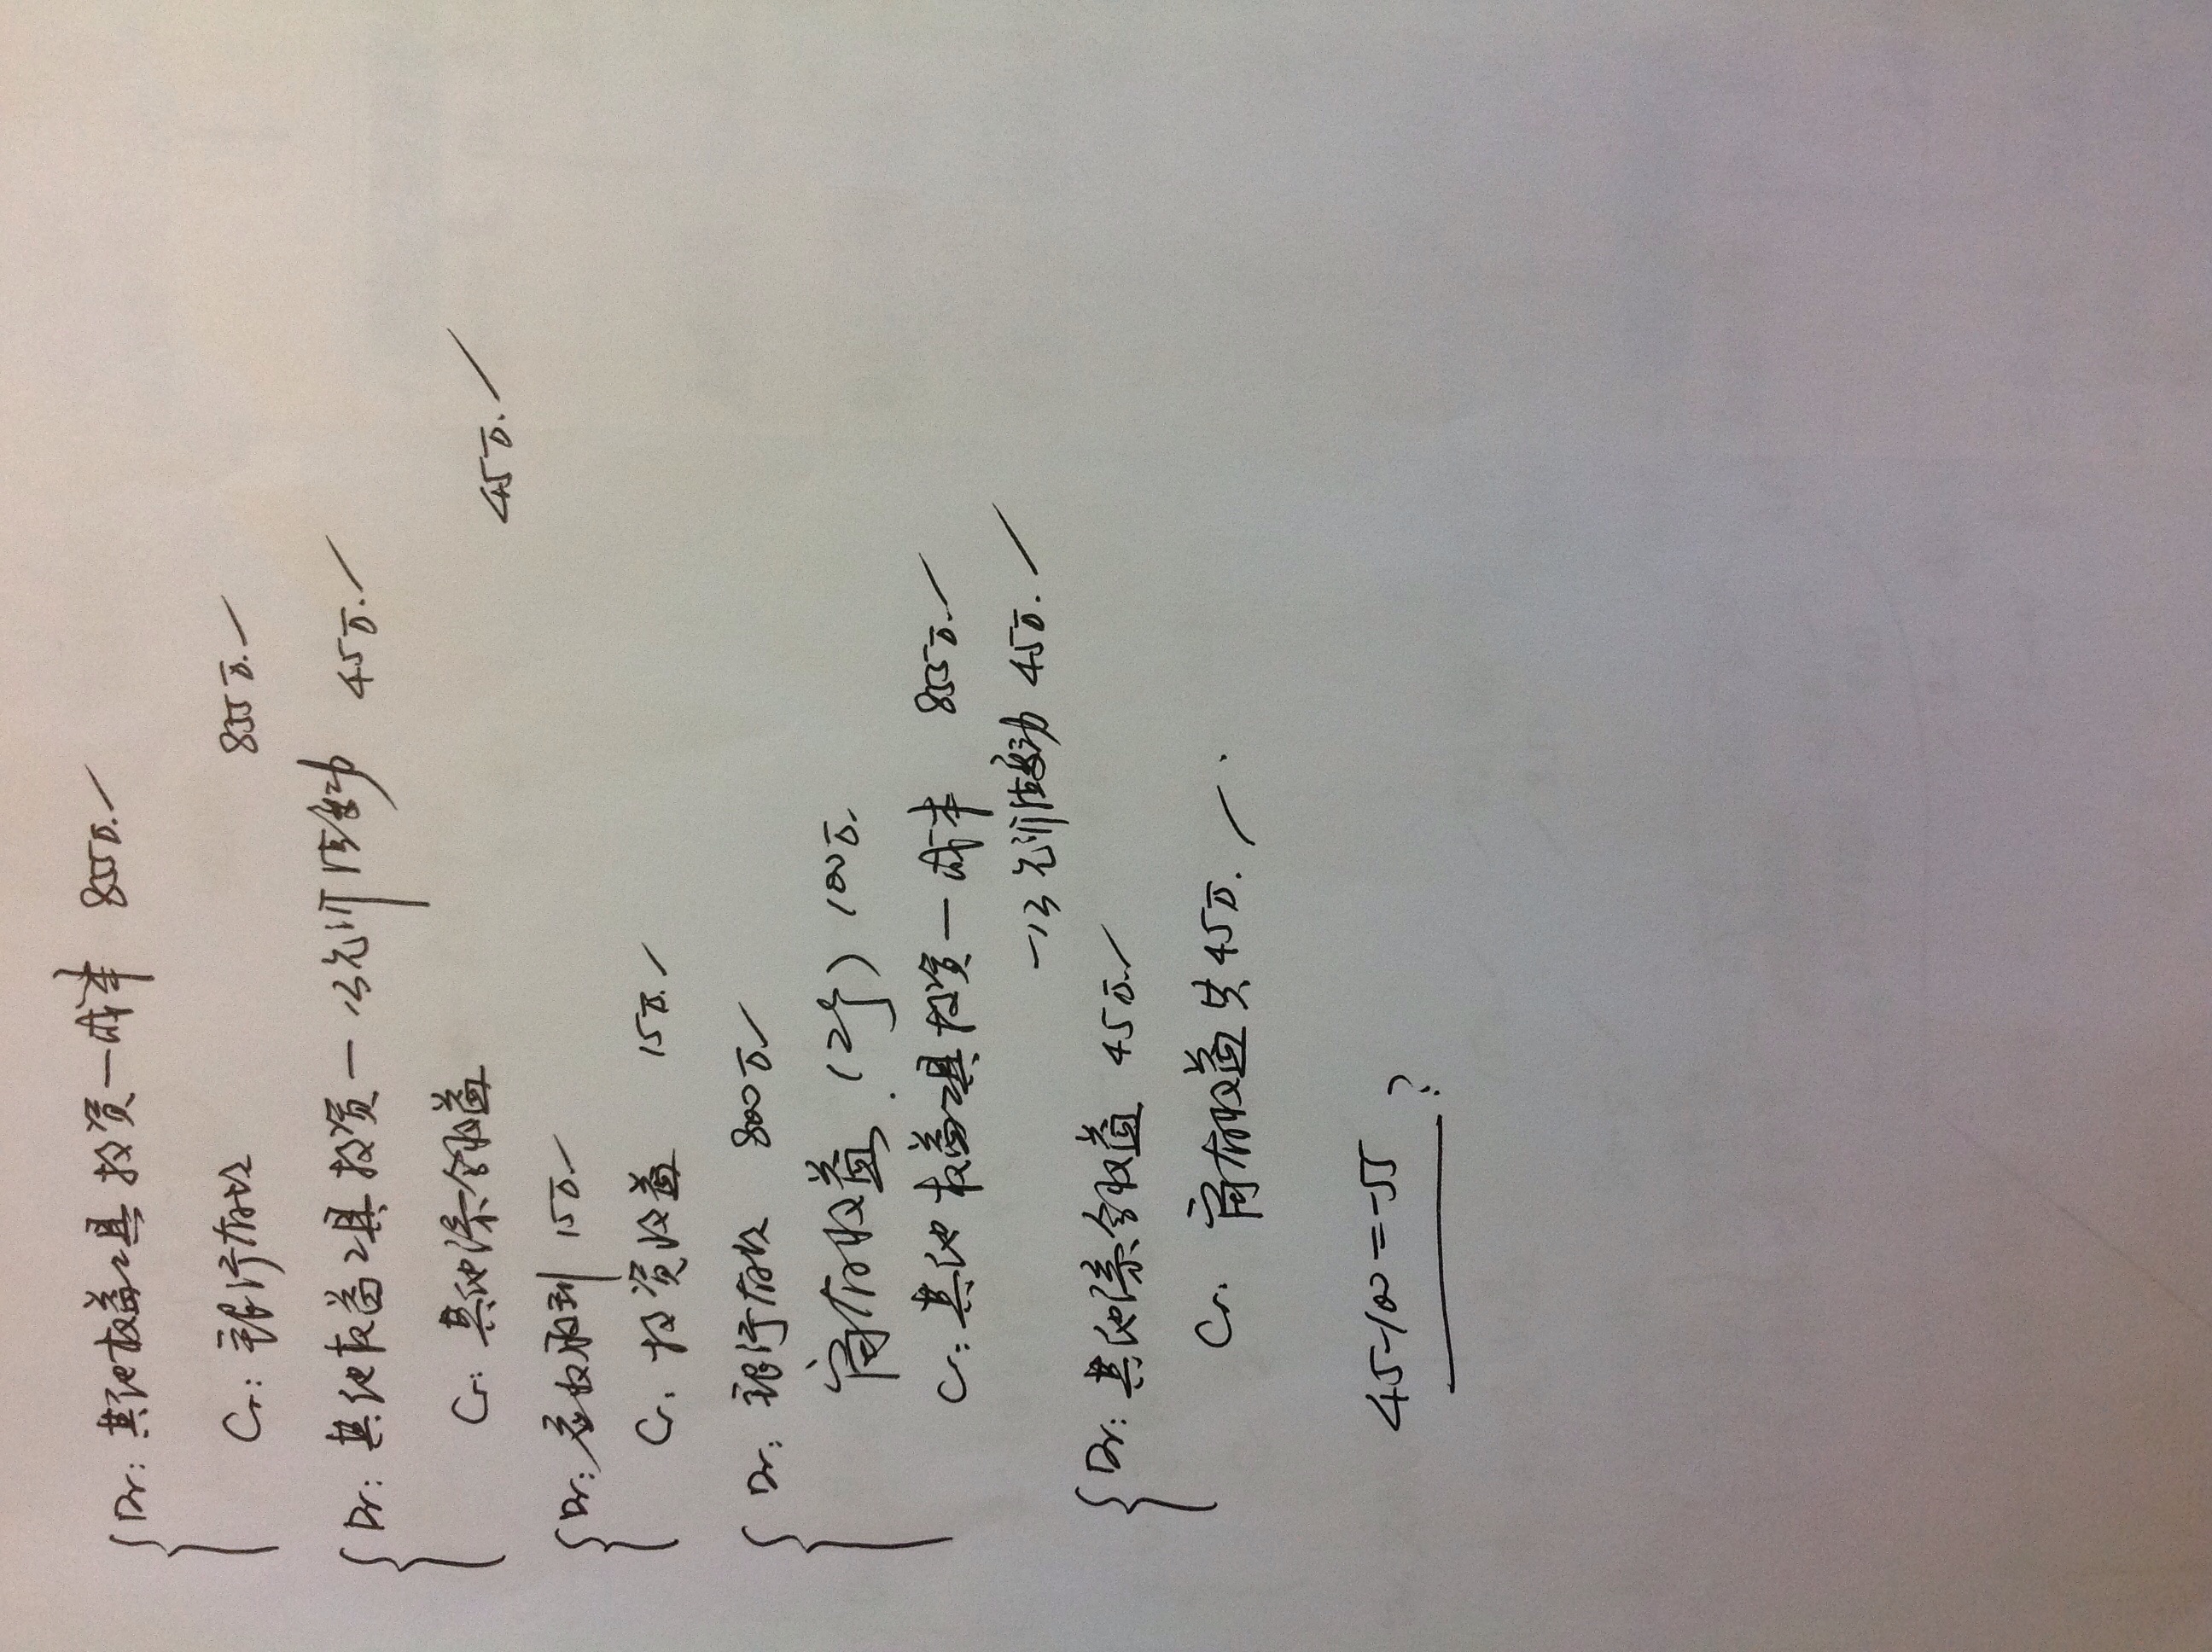 Dr: 其他权益工具投资—成本 855万.
Cr: 银行存款 855万.
Dr: 其他权益工具投资—公允价值变动 45万.
Cr: 其他综合收益 45万.
Dr: 应收股利 15万.
Cr. 投资收益 15万.
Dr: 银行存款 800万.
留存收益. (2个) 100万.
Cr: 其他权益工具投资—成本 855万.
—公允价值变动 45万.
Dr: 其他综合收益 45万.
Cr. 留存收益 45万.
45-100=-55 ?